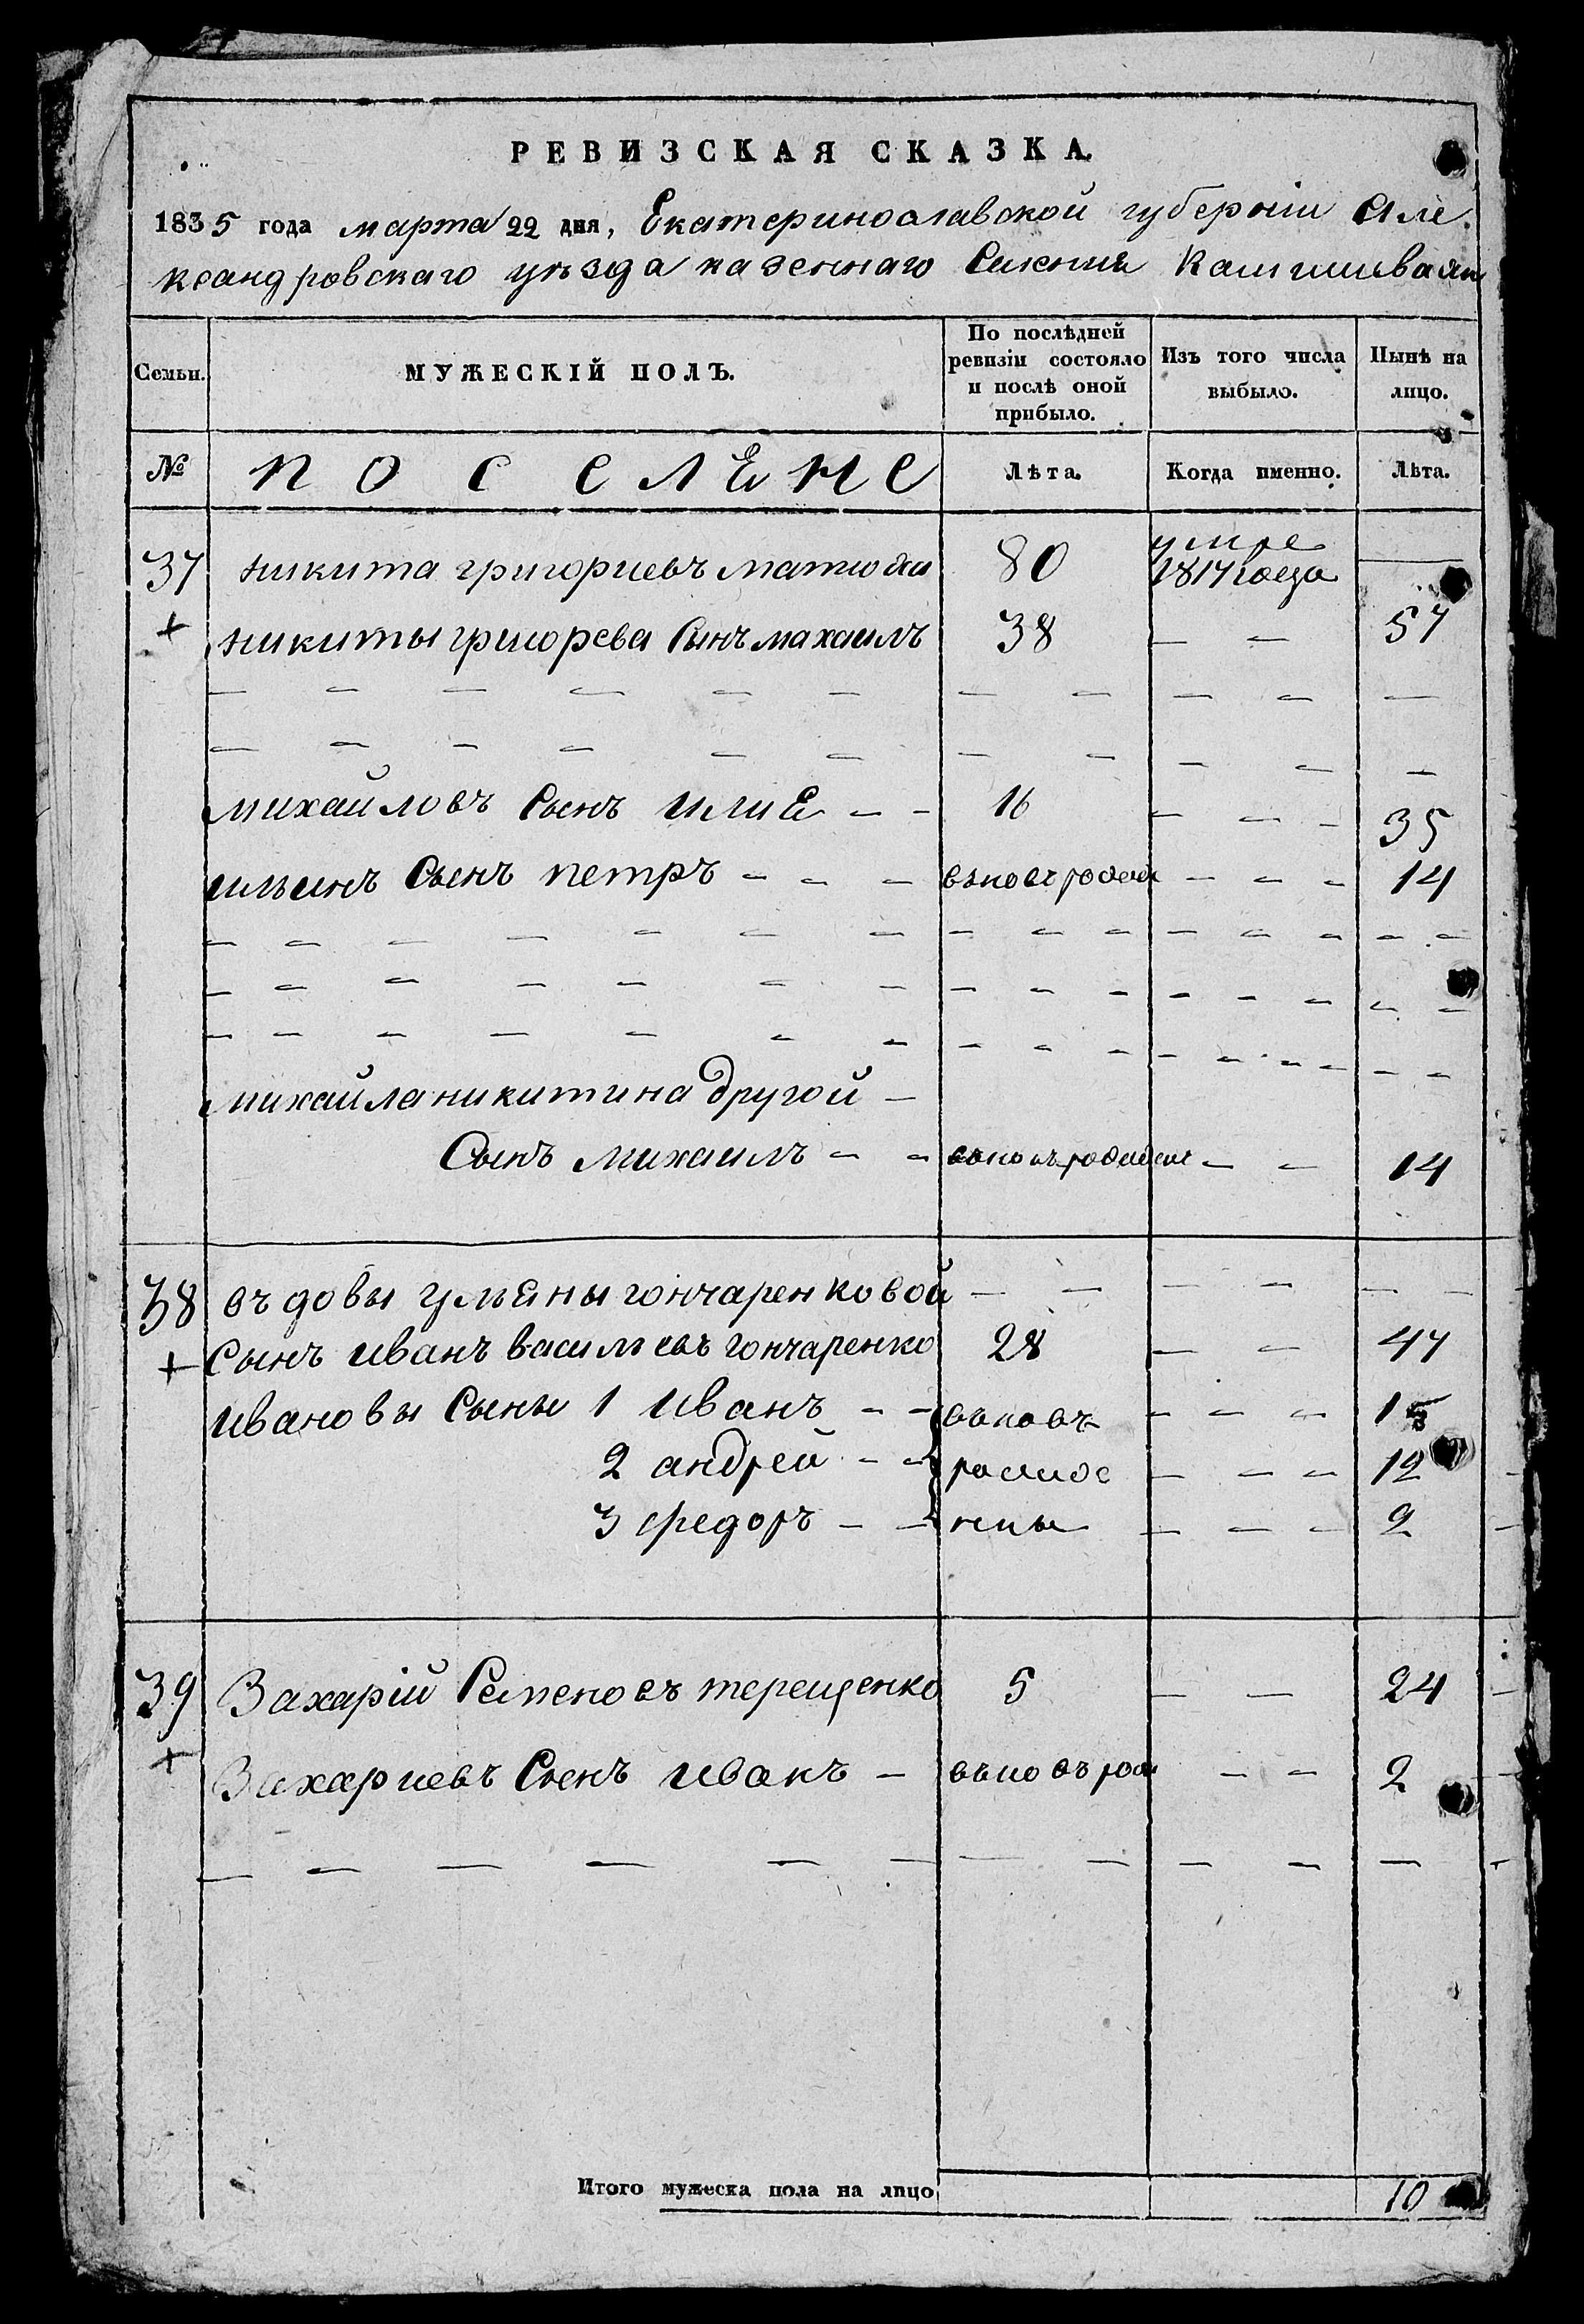 РЕВИЗСКАЯ СКАЗКА.
1835 года марта 22 дня, Екатеринославской губернiи Але
ксандровскаго уѣзда казеннаго Селения
Семьи. МУЖЕСКІЙ ПОЛЪ. По послѣдней ревизіи состояло и послѣ оной прибыло. Изъ того числа выбыло. Нынѣ на лицо.
№ поселене Лѣта. Когда именно. Лѣта.
37 никита григориевъ 80 умре 1817 года —
+ никиты григорева Сынъ махаилъ 38 — — 57
михайловъ Сынъ илиЕ — — 16 — — — 35
ильинъ Сынъ петръ — — — въновъ — — — 14
михайла никитина другой —
Сынъ михаилъ — — въновъ — — 14
38 въдовы ульЕны гончаренковой — — — — — —
+ Сынъ иванъ васильевъ гончаренко 28 — — 47
ивановы Сыны 1 иванъ — — въновъ — — — 15
2 андрей — — — — — 12
3 федоръ — — ны — — — 2
39 Захарій Семеновъ терещенко 5 — — 24
+ Захариевъ Сынъ иванъ — въновъ рож — — 2
Итого мужеска пола на лицо 10